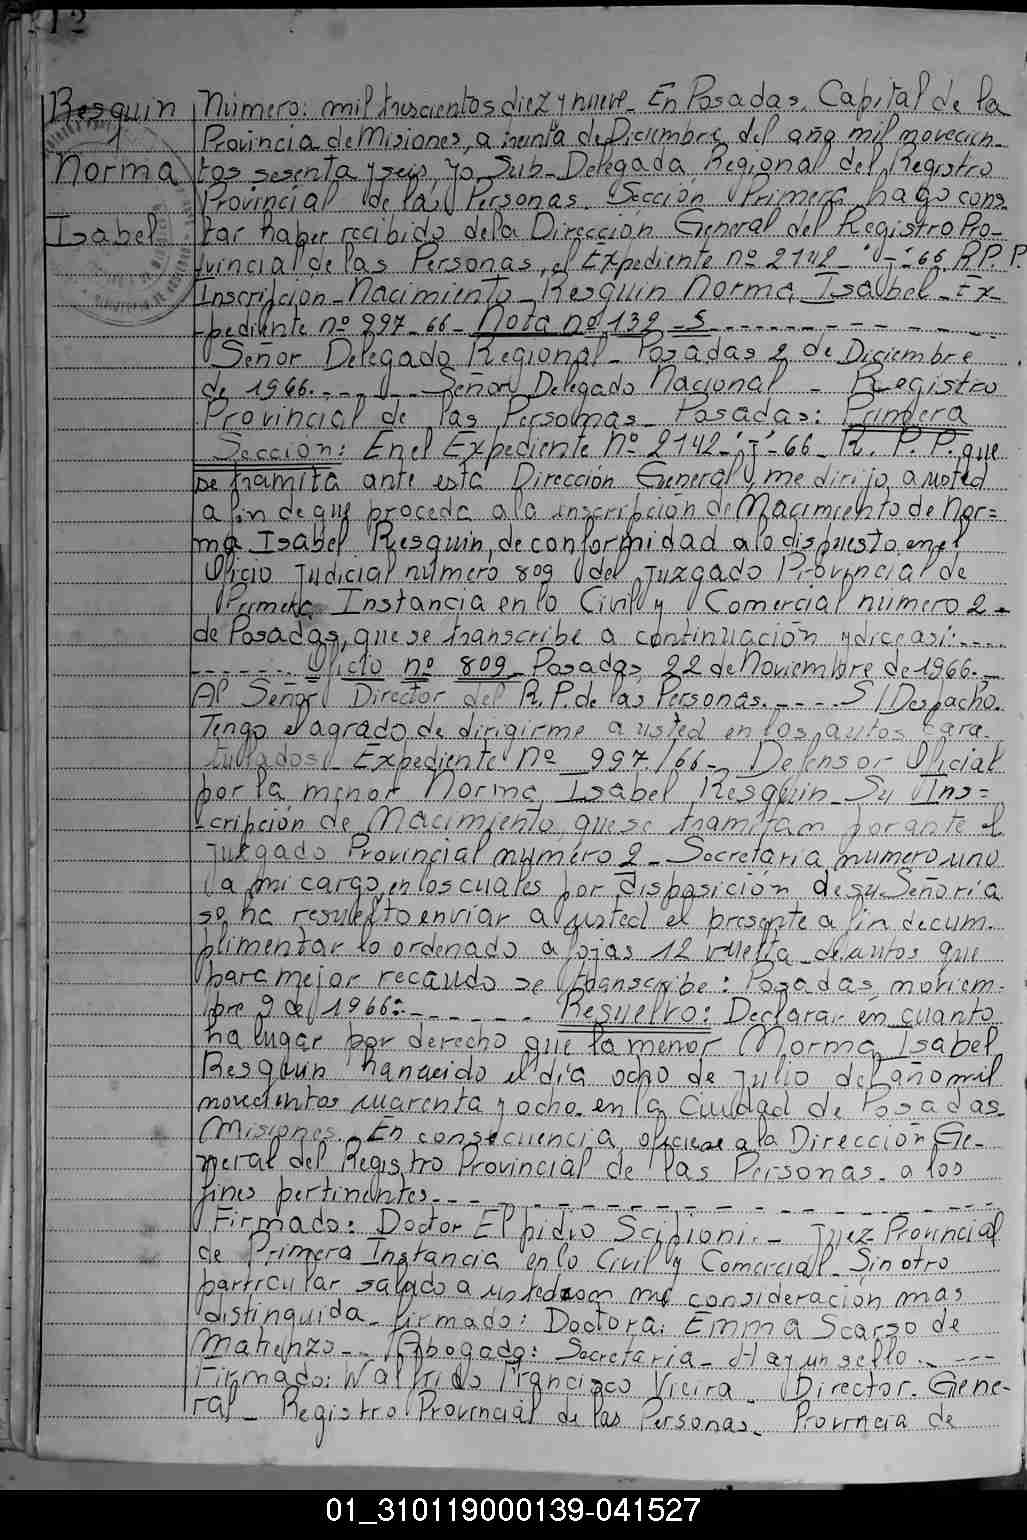 12
Resquin
Norma
Isabel
Número: mil trescientos diez y nueve_ En Posadas, Capital de la
Provincia de Misiones, a treinta de Diciembre del año mil novecien_
tos sesenta y seis, yo Sub_Delegada Regional del Registro
Provincial de las Personas. Sección Primera hago cons_
tar haber recibido de la Dirección General del Registro Pro_
vincial de las Personas, el Expediente nº 2142_"J"_66. R.P.P.
Inscripcion_Nacimiento_Resquin Norma Isabel_Ex_
pediente nº 997_66_Nota nº 139_S_ _ _ _ _ _ _ _ _ _
Señor Delegado Regional_ Posadas 2 de Diciembre
de 1966._ _ _ _ _ Señor Delegado Nacional _ Registro
Provincial de las Personas_ Posadas: Primera
Sección: En el Expediente nº 2142_"J"_66_R.P.P. que
se tramita ante esta Dirección General y me dirijo, a usted
a fin de que proceda a la inscripción de Nacimiento de Nor=
ma Isabel Resquin, de conformidad a lo dispuesto en el
Oficio Judicial número 809 del Juzgado Provincial de
Primera Instancia en lo Civil y Comercial número 2_
de Posadas, que se transcribe a continuación y dice asi:_ _ _
_ _ _ _ _ Oficio nº 809_Posadas, 22 de Noviembre de 1966._
Al Señor Director del R.P. de las Personas._ _ _ _ S/Despacho.
Tengo el agrado de dirigirme a usted en los autos cara_
tulados:_ Expediente Nº 997/66_ Defensor Oficial
por la menor Norma Isabel Resquin_ Su Ins=
cripción de Nacimiento, que se tramitan por ante el
Juzgado Provincial número 2_ Secretaria número uno
a mi cargo, en los cuales por disposición de su Señoria
se ha resuelto enviar a usted el presente a fin de cum_
plimentar lo ordenado a fojas 12 vuelta de autos que
para mejor recaudo se transcribe: Posadas, noviem_
bre 9 de 1966:_ _ _ _ _ _ Resuelvo: Declarar en cuanto
ha lugar por derecho que la menor Norma Isabel
Resquin ha nacido el día ocho de Julio del año mil
novecientos cuarenta y ocho en la Ciudad de Posadas_
Misiones. En consecuencia, oficiese a la Dirección Ge_
neral del Registro Provincial de las Personas. a los
fines pertinentes._ _ _ _ _ _ _ _ _ _ _ _ _ _ _
Firmado: Doctor Elpidio Scipioni._ Juez Provincial
de Primera Instancia en lo Civil y Comercial_ Sin otro
particular saludo a usted con mi consideración mas
distinguida_ firmado: Doctora: Emma Scarso de
_ _ Abogada: Secretaria_ Hay un sello._ _ _
Firmado: Walfrido Francisco Vieira_ Director_Gene_
ral_ Registro Provincial de las Personas_ Provincia de
01_310119000139-041527